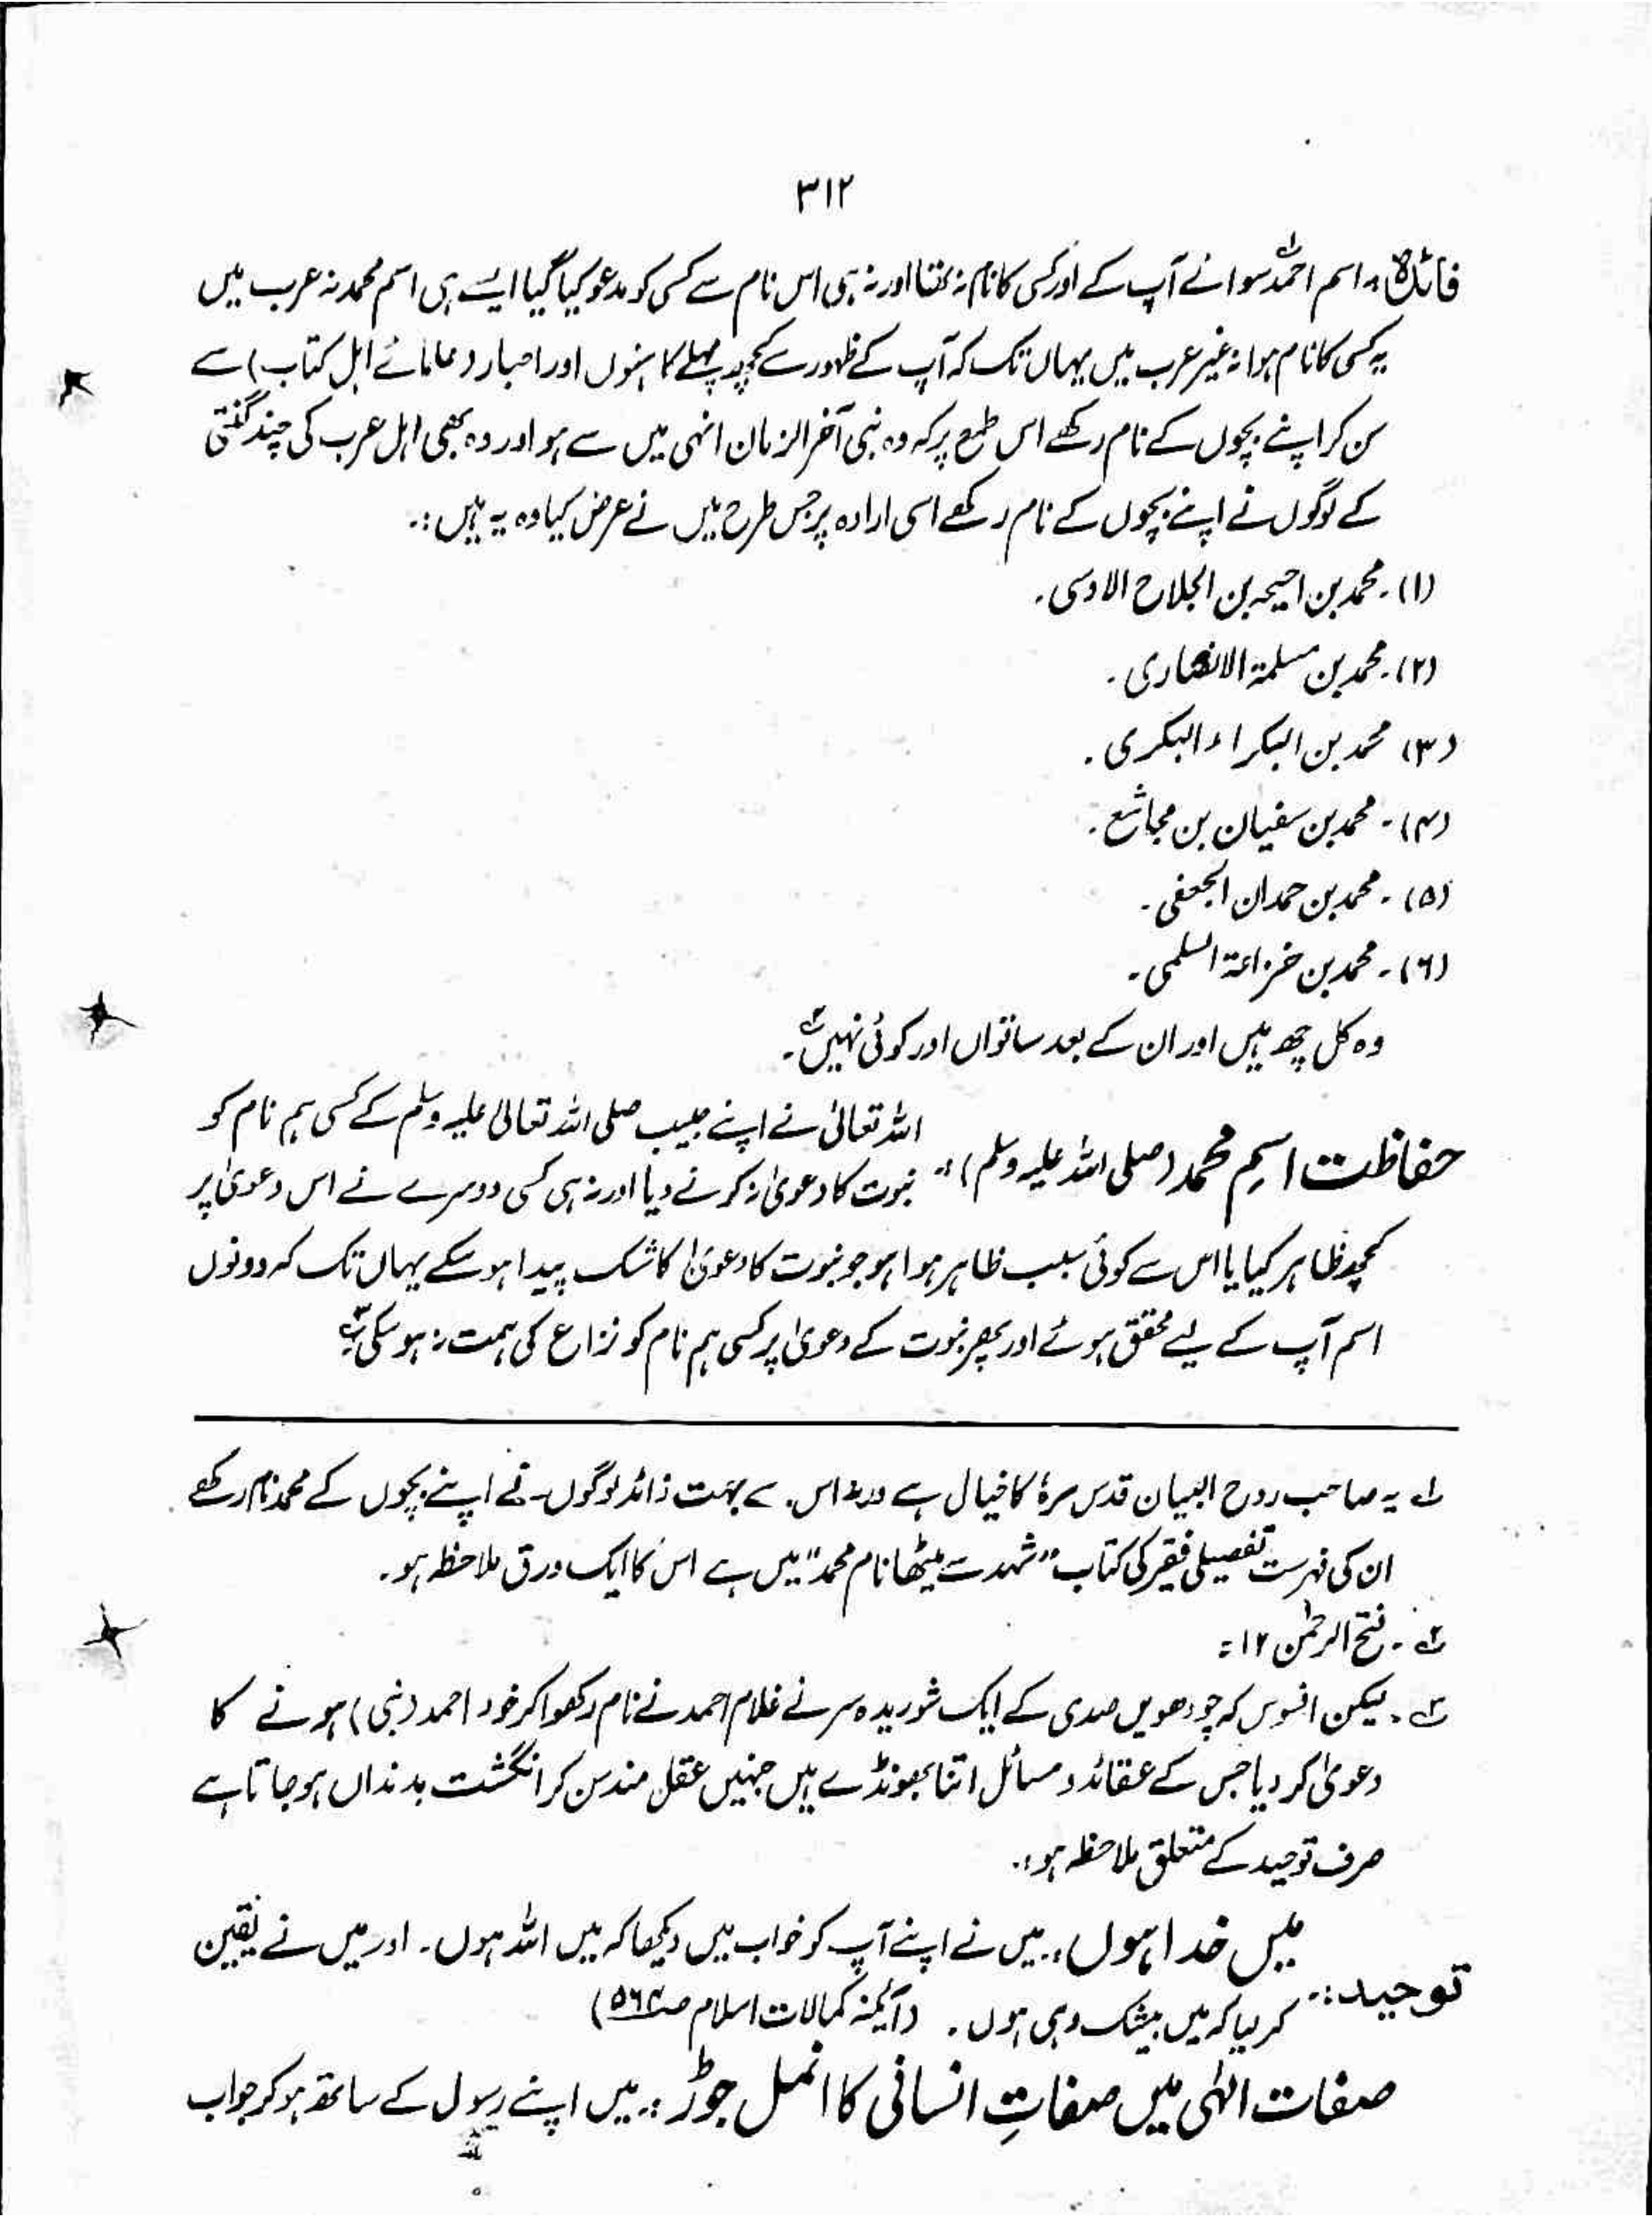 ۳۱۲
فائدہ:۔ اسم احمدؐ سوائے آپ کے اور کسی کا نام نہ تھا اور نہ ہی اس نام سے کسی کو مدعو کیا گیا ایسے ہی اسم محمد نہ عرب میں
یہ کسی کا نام ہوا نہ غیر عرب میں یہاں تک کہ آپ کے ظہور سے کچھ پہلے کاہنوں اور احبار (علمائے اہل کتاب) سے
سن کر اپنے بچوں کے نام رکھے اس طمع پر کہ وہ نبی آخر الزمان انہی میں سے ہو اور وہ بھی اہل عرب کی چند گنتی
کے لوگوں نے اپنے بچوں کے نام رکھے اسی ارادہ پر جس طرح میں نے عرض کیا وہ یہ ہیں :۔
(۱)۔ محمد بن احیحہ بن الجلاح الاوسی۔
(۲)۔ محمد بن مسلمۃ الانصاری۔
(۳) محمد بن البکراء البکری۔
(۴)۔ محمد بن سفیان بن مجاشع۔
(۵)۔ محمد بن حمدان الجعفی۔
(۶)۔ محمد بن خزاعۃ السلمی۔
وہ کل چھ ہیں اور ان کے بعد ساتواں اور کوئی نہیں۲؎۔
حفاظت اسمِ محمد (صلی اللہ علیہ وسلم) :۔ اللہ تعالیٰ نے اپنے حبیب صلی اللہ تعالیٰ علیہ وسلم کے کسی ہم نام کو
نبوت کا دعویٰ نہ کرنے دیا اور نہ ہی کسی دوسرے نے اس دعویٰ پر
کچھ ظاہر کیا یا اس سے کوئی سبب ظاہر ہوا ہو جو نبوت کا دعویٰ کا شک پیدا ہو سکے یہاں تک کہ دونوں
اسم آپ کے لیے محقق ہوئے اور پھر نبوت کے دعویٰ پر کسی ہم نام کو نزاع کی ہمت نہ ہو سکی۳؎
۱؎ یہ صاحب روح البیان قدس سرہٗ کا خیال ہے ورنہ اس سے بہت زائد لوگوں نے اپنے بچوں کے محمد نام رکھے۔
ان کی فہرست تفصیلی فقیر کی کتاب "شہد سے میٹھا نام محمد" میں ہے اس کا ایک ورق ملاحظہ ہو۔
۲؎۔ فتح الرحمٰن ۱۲ =
۳؎۔ لیکن افسوس کہ چودھویں صدی کے ایک شوریدہ سر نے غلام احمد نے نام رکھوا کر خود احمد (نبی) ہونے کا
دعویٰ کر دیا جس کے عقائد و مسائل اتنا بھونڈے ہیں جنہیں عقل مند سن کر انگشت بدنداں ہو جاتا ہے
صرف توحید کے متعلق ملاحظہ ہو :۔
توحید:۔ میں خدا ہوں :۔ میں نے اپنے آپ کو خواب میں دیکھا کہ میں اللہ ہوں۔ اور میں نے یقین
کر لیا کہ میں بیشک وہی ہوں۔ (آئینہ کمالات اسلام صـ ۵۶۴)
صفات الٰہی میں صفاتِ انسانی کا انمل جوڑ :۔ میں اپنے رسول کے ساتھ ہو کر جواب